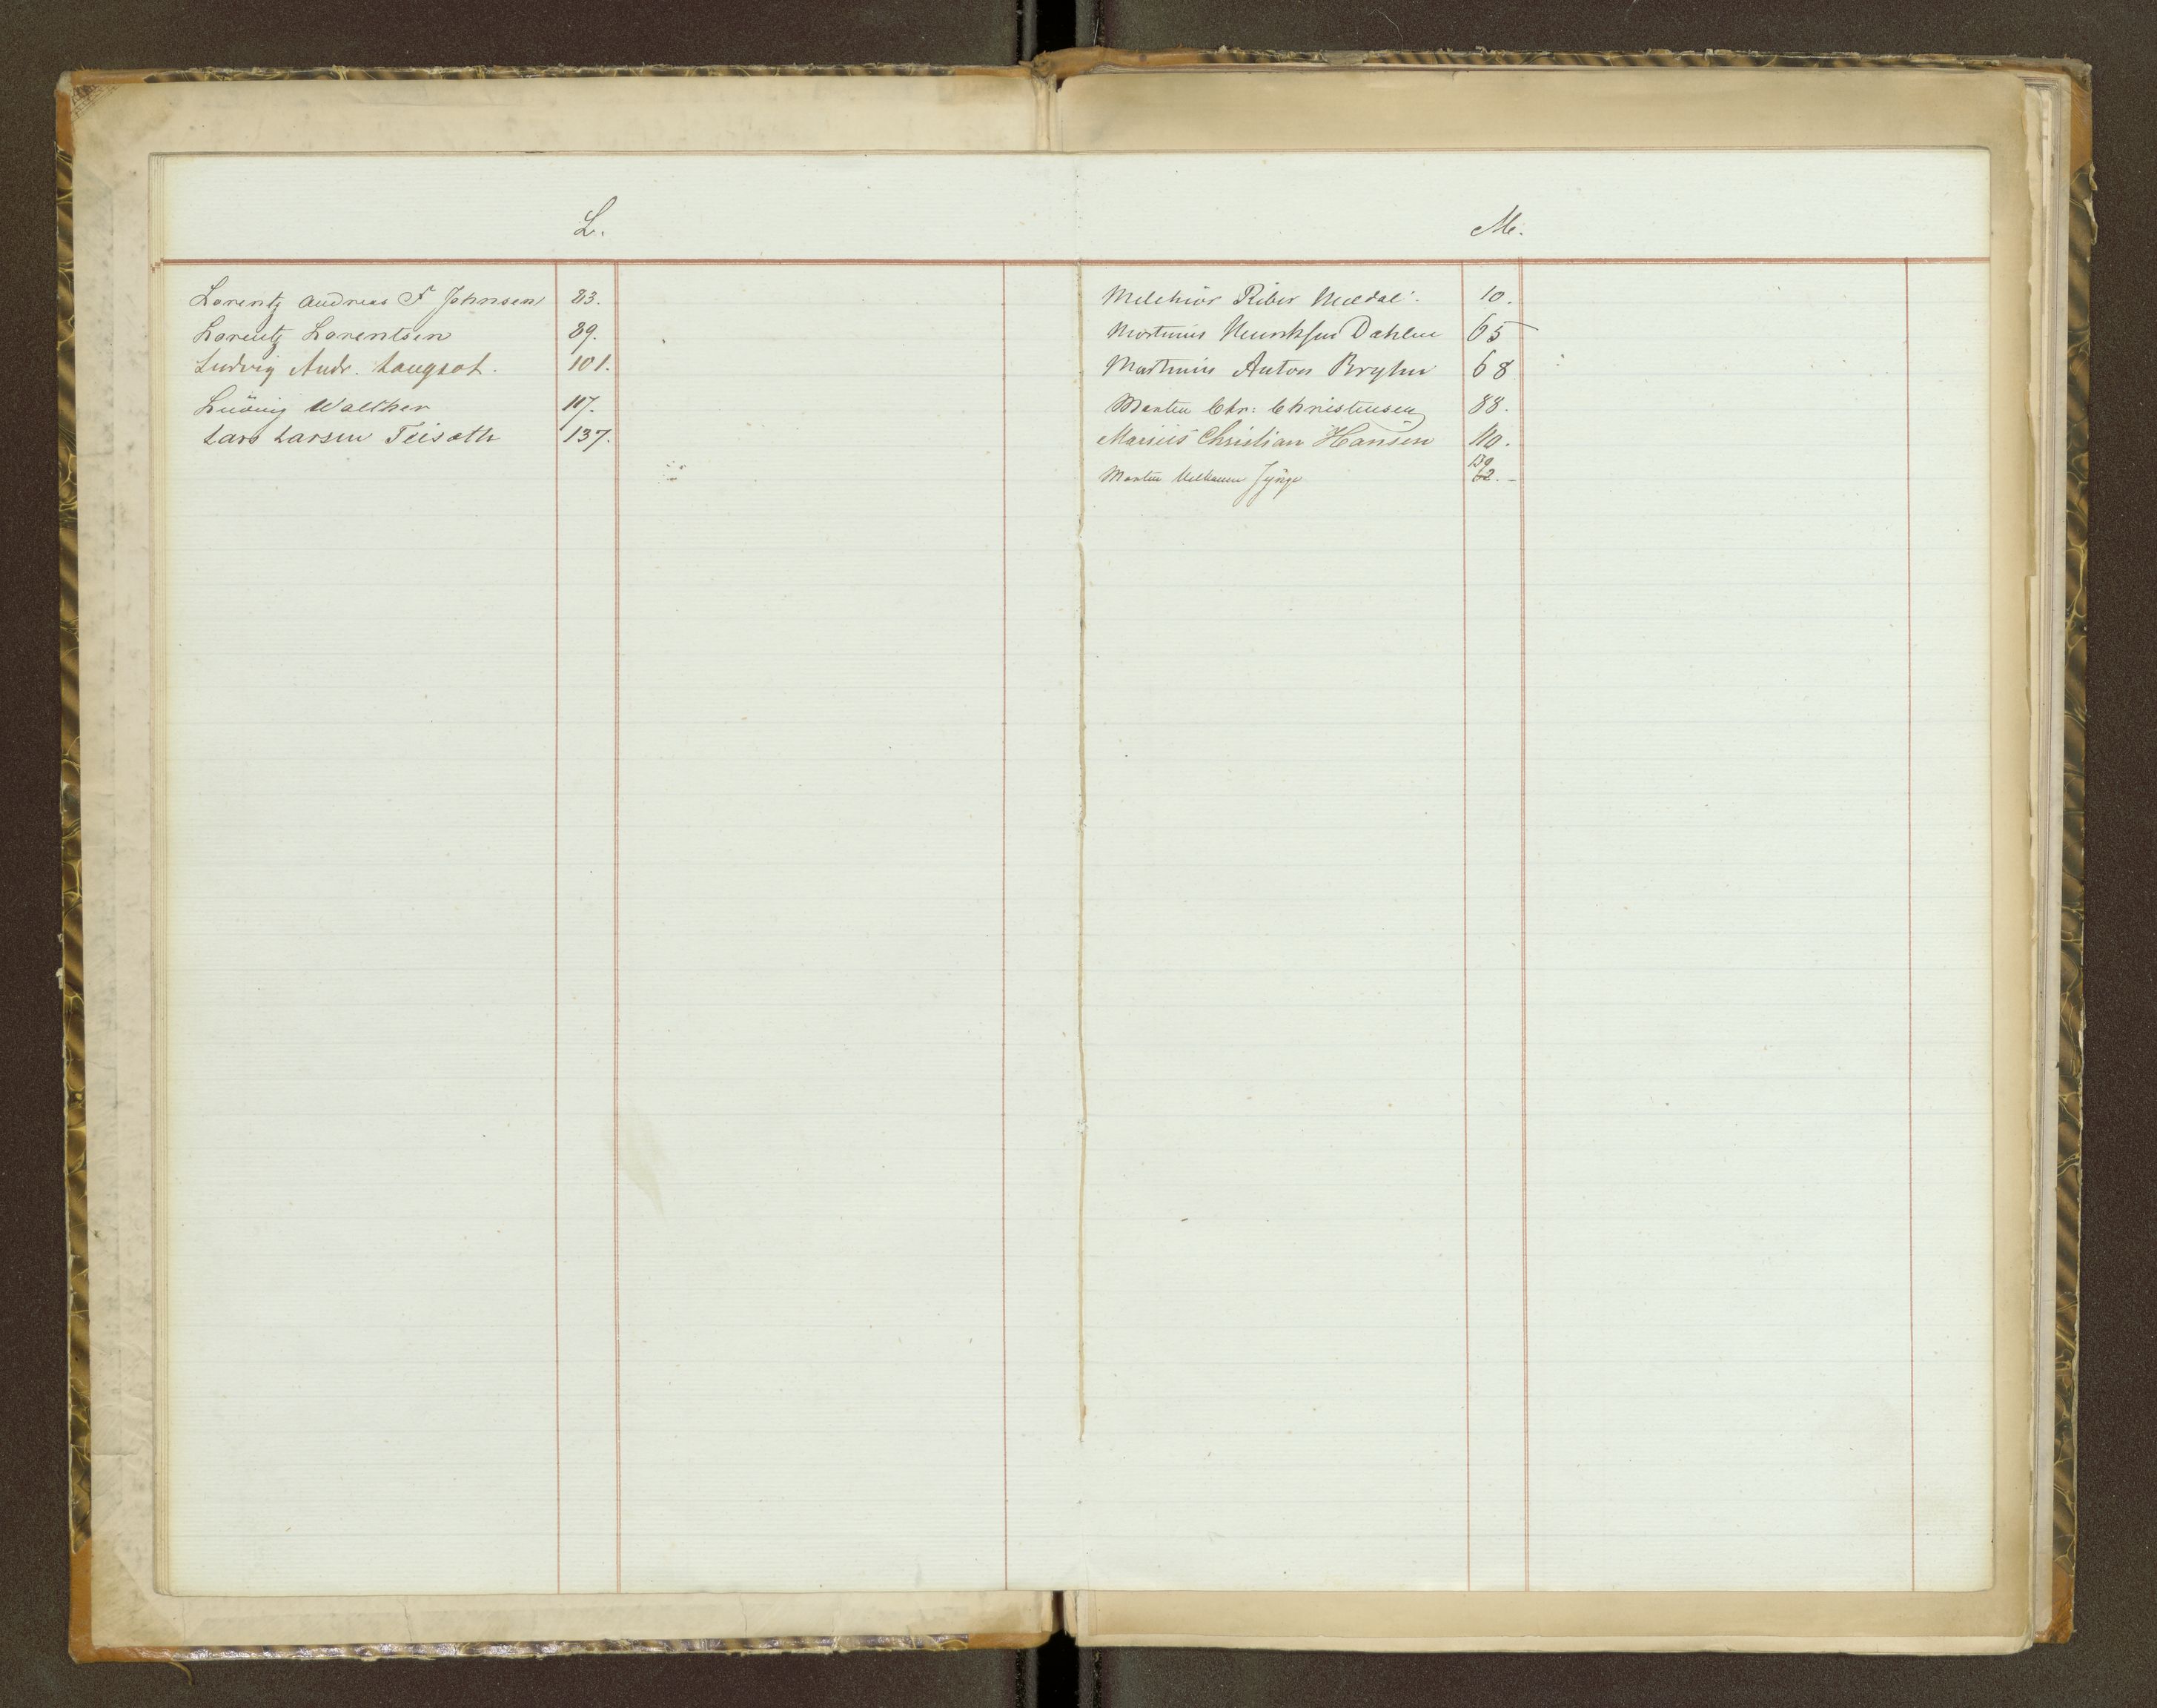 L.
Lorentz Andreas F Johnsen 83.
Lorentz Lorentsen 89.
Ludvig Andr. Langsot. 101.
Ludvig Walther 117.
Lars Larsen Teisath 137.
M.
Melchior Riber Meldal. 10.
Martinus Dahlen 65
Martinus Anton Bryhn 68
Martin Chr: Christensen 88.
Marius Christian Hansen 110.
Martin 139
62.